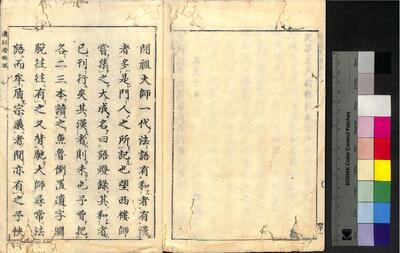 開祖大師一代法語有和者有漢
者多是門人之所記也望西樓師
嘗集之大成名曰語燈錄其和者
已刊行矣其漢者則未也予曾把
各二三本讀之魚魯倒置遺字闕
脫往往有之又背馳大師尋常法
語而牟盾宗義者間亦有之予怏
KODAK Color Control Patches